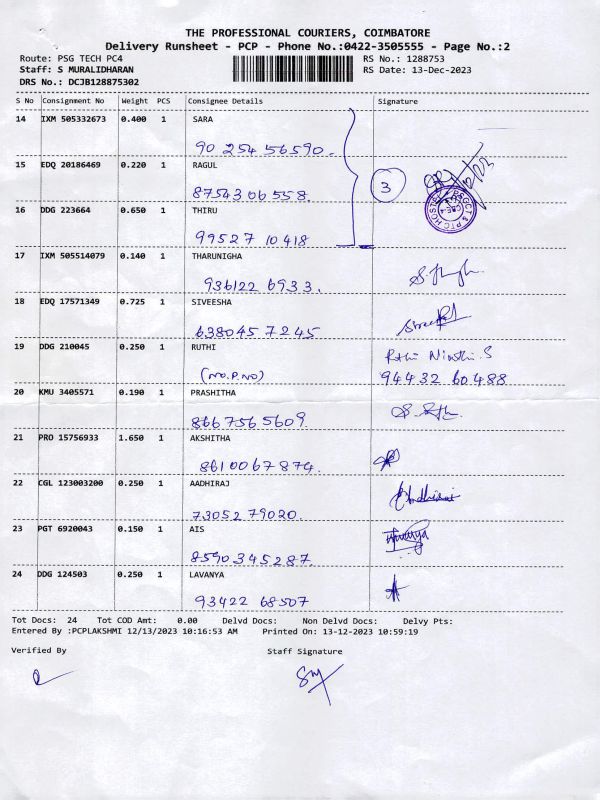 THE PROFESSIONAL COURIERS, COIMBATORE
Delivery Runsheet - PCP - Phone No.:0422-3505555 - Page No.:2
Route: PSG TECH PC4 RS No.: 1288753
Staff: S MURALIDHARAN RS Date: 13-Dec-2023
DRS No.: DCJB128875302
S No Consignment No Weight PCS Consignee Details Signature
14 IXM 505332673 0.400 1 SARA
90 254 56590.
15 EDQ 20186469 0.220 1 RAGUL
3
8754306558.
16 DDG 223664 0.650 1 THIRU
99527 10418
17 IXM 505514079 0.140 1 THARUNIGHA
936122 6933.
18 EDQ 17571349 0.725 1 SIVEESHA
6380457245
19 DDG 210045 0.250 1 RUTHI
(NO.P.NO) 94432 60488
20 KMU 3405571 0.190 1 PRASHITHA
8667565609.
21 PRO 15756933 1.650 1 AKSHITHA
8610067874.
22 CGL 123003200 0.250 1 AADHIRAJ
73052 79020.
23 PGT 6920043 0.150 1 AIS
8590345287.
24 DDG 124503 0.250 1 LAVANYA
93422 68507
Tot Docs: 24 Tot COD Amt: 0.00 Delvd Docs: Non Delvd Docs: Delvy Pts:
Entered By :PCPLAKSHMI 12/13/2023 10:16:53 AM Printed On: 13-12-2023 10:59:19
Verified By Staff Signature